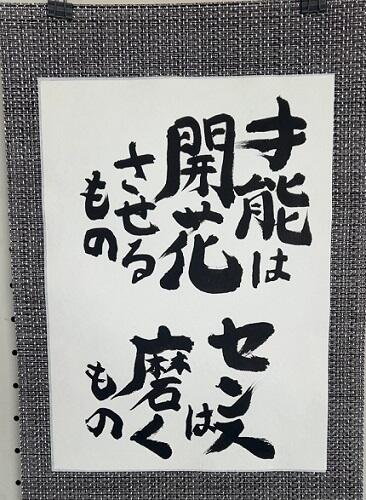 才能は
開花
させる
もの
センス
は
磨く
もの